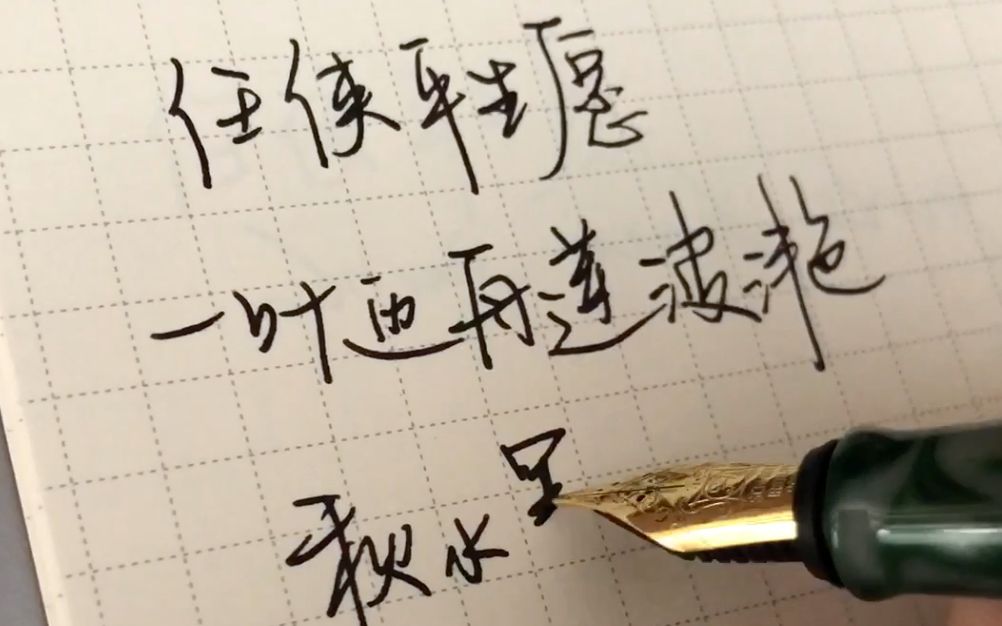 任侠平生愿
一叶舟莲波滟
秋水呈